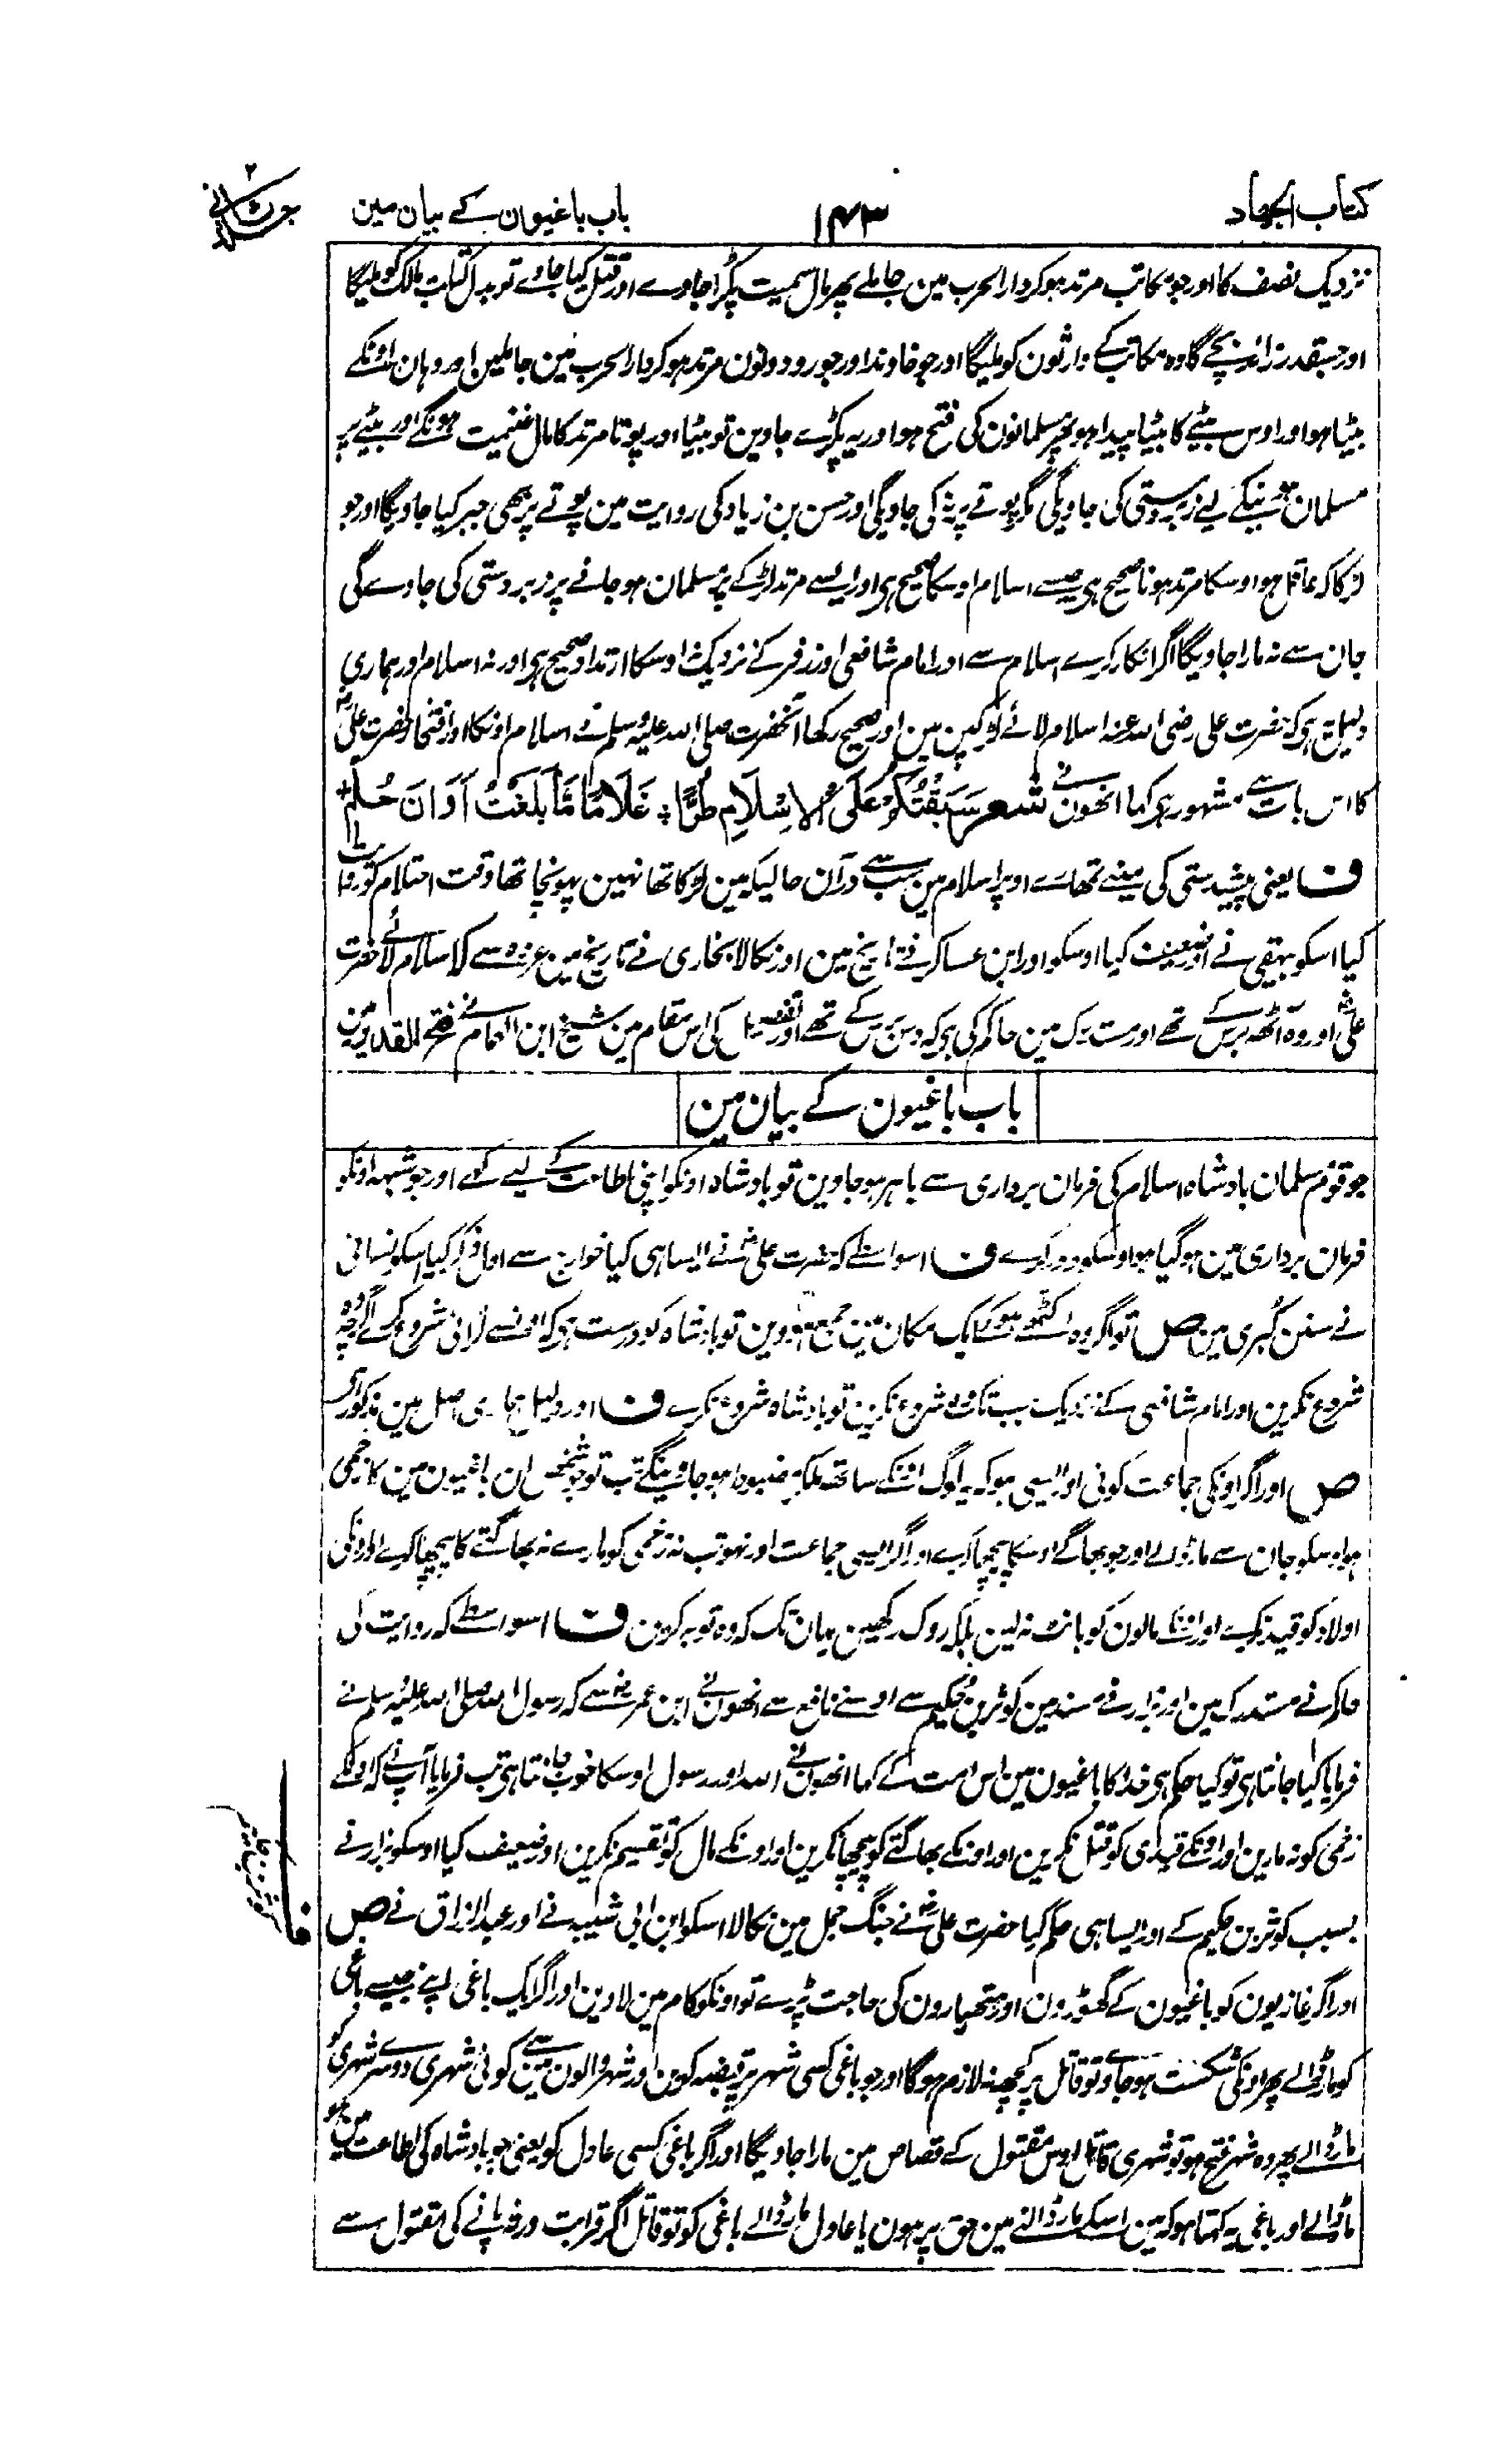 کتاب الجہاد ۱۴۳ باب باغیون کے بیان مین
نزدیک نصف کا اور جو مکاتب مرتد ہوکر دار الحرب مین جا ملے پھر مال سمیت پکڑا جاوے اور قتل کیا جاوے تو بدل کتابت مالک کو ملیگا
اور جسقدر زائد بچے گا وہ مکاتب کے وارثون کو ملیگا اور جو خاوند اور جورو دونون مرتد ہوکر دار الحرب مین جا ملین اور وہان اونکے
بیٹا ہو اور اوس بیٹے کا بیٹا پیدا ہو پھر مسلمانون کی فتح ہو اور یہ پکڑے جاوین تو بیٹا اور پوتا مرتد کا مال غنیمت ہونگے اور بیٹے پر
مسلمان ہونیکے لیے زبردستی کی جاویگی مگر پوتے پر نہ کی جاویگی اور حسن بن زیاد کی روایت مین پوتے پر بھی جبر کیا جاویگا اور جو
لڑکا کہ عاقل ہو اوسکا مرتد ہونا صحیح ہی جیسے اسلام اوسکا صحیح ہی اور ایسے مرتد لڑکے پر مسلمان ہو جانے پر زبردستی کی جاوے گی
جان سے نہ مارا جاویگا اگر انکار کرے اسلام سے اور امام شافعی اور زفر کے نزدیک نہ اوسکا ارتداد صحیح ہی اور نہ اسلام اور ہماری
دلیل یہ ہی کہ حضرت علی رضی اللہ عنہ اسلام لائے لڑکپن مین اور صحیح رکھا آنحضرت صلی اللہ علیہ وسلم نے اسلام اونکا اور افتخار حضرت علی رض
کا اس بات سے مشہور ہی کہا انھون نے شعر سَبَقْتُكُمْ عَلَى الْاِسْلَامِ طُرًّا ٭ غُلَامًا مَّا بَلَغْتُ اَوَانَ حُلُمْ
ف یعنی پیشدستی کی مینے تمھارے اوپر اسلام مین سب سے درآن حالیکہ مین لڑکا تھا نہین پہونچا تھا وقت احتلام کو روایت
کیا اسکو بیہقی نے اور ضعیف کیا اوسکو اور ابن عساکر نے تاریخ مین اور نکالا بخاری نے تاریخ مین عروہ سے کہ اسلام لائے حضرت
علی رض اور وہ آٹھ برس کے تھے اور مستدرک مین حاکم کی ہی کہ دس برس کے تھے اور تفصیل کی اس مقام مین شیخ ابن الہمام نے فتح القدیر مین
باب باغیون کے بیان مین
جو قوم مسلمان بادشاہ اسلام کی فرمان برداری سے باہر ہو جاوین تو بادشاہ اونکو اپنی اطاعت کے لیے کہے اور جو شبہہ اونکو
فرمان برداری مین ہوگیا ہو اوسکو دور کرے ف اسواسطے کہ حضرت علی رض نے ایسا ہی کیا خوارج سے اخراج کیا اسکو نسائی
نے سنن کبری مین ص تو اگر وہ اکٹھے ہوکر ایک مکان مین جمع ہووین تو بادشاہ کو درست ہی کہ اونسے لڑائی شروع کرے اگرچہ وہ
شروع نکرین اور امام شافعی کے نزدیک جب تک وہ شروع نکرین تو بادشاہ شروع نکرے ف اور دلیل ہماری اصل مین مذکور ہی
ص اور اگر اونکی جماعت کوئی اور ایسی ہو کہ یہ لوگ اونکے ساتھ ملکر مضبوط ہو جاوینگے تب تو جو شخص ان باغیون مین کا زخمی
ہو اوسکو جان سے مارڈالے اور جو بھاگے اوسکا پیچھا کرے اور اگر ایسی جماعت اور نہو تب نہ زخمی کو مارے نہ بھاگتے کا پیچھا کرے اور اونکی
اولاد کو قید نکرے اور اونکے مالون کو بانٹ نہ لین بلکہ روک رکھین یہان تک کہ وہ توبہ کرین ف اسواسطے کہ روایت کی
حاکم نے مستدرک مین اور بزار نے مسند مین کوثر بن حکیم سے اوسنے نافع سے انھون نے ابن عمر رض سے کہ رسول اللہ صلی اللہ علیہ وسلم نے
فرمایا کیا جانتا ہی تو کیا حکم ہی خدا کا باغیون مین اس امت کے کہا انھون نے اللہ اور رسول اوسکا خوب جانتا ہی تب فرمایا آپ نے کہ اونکے
زخمی کو نہ مارین اور اونکے قیدی کو قتل نکرین اور اونکے بھاگتے کو پیچھا نکرین اور اونکے مال کو تقسیم نکرین اور ضعیف کیا اوسکو بزار نے
بسبب کوثر بن حکیم کے اور ایسا ہی حکم کیا حضرت علی رض نے جنگ جمل مین نکالا اسکو ابن ابی شیبہ نے اور عبد الرزاق نے ص
اور اگر غازیون کو باغیون کے گھوڑون اور ہتھیارون کی حاجت پڑے تو اونکو کام مین لاوین اور اگر ایک باغی اپنے جیسے باغی
کو مارڈالے پھر اونکی شکست ہو جاوے تو قاتل پر کچھ نہ لازم ہوگا اور جو باغی کسی شہر پر قبضہ کرین اور شہر والون مین سے کوئی شہری دوسرے شہری کو
مارڈالے پھر وہ شہر فتح ہو تو شہری قاتل اوس مقتول کے قصاص مین مارا جاویگا اور اگر باغی کسی عادل کو یعنی جو بادشاہ کی اطاعت مین ہو
مارڈالے اور باغی یہ کہتا ہو کہ مین اسکے مارڈالنے مین حق پر ہون یا عادل مارڈالے باغی کو تو قاتل اگر قرابت ورثہ پانے کی مقتول سے